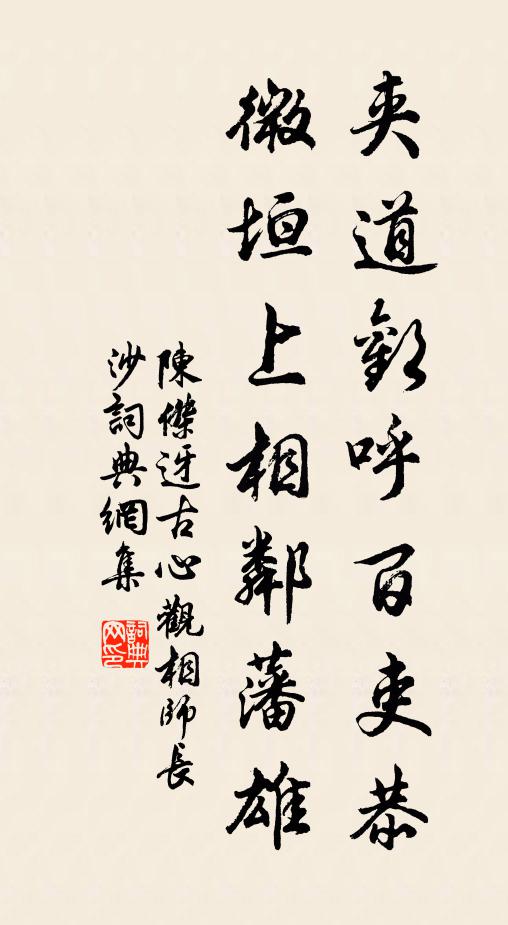 夹道歡呼百吏恭
微垣上相鄰藩雄
陳傑迓古心觀相師長
沙詞典網集
詞典网印